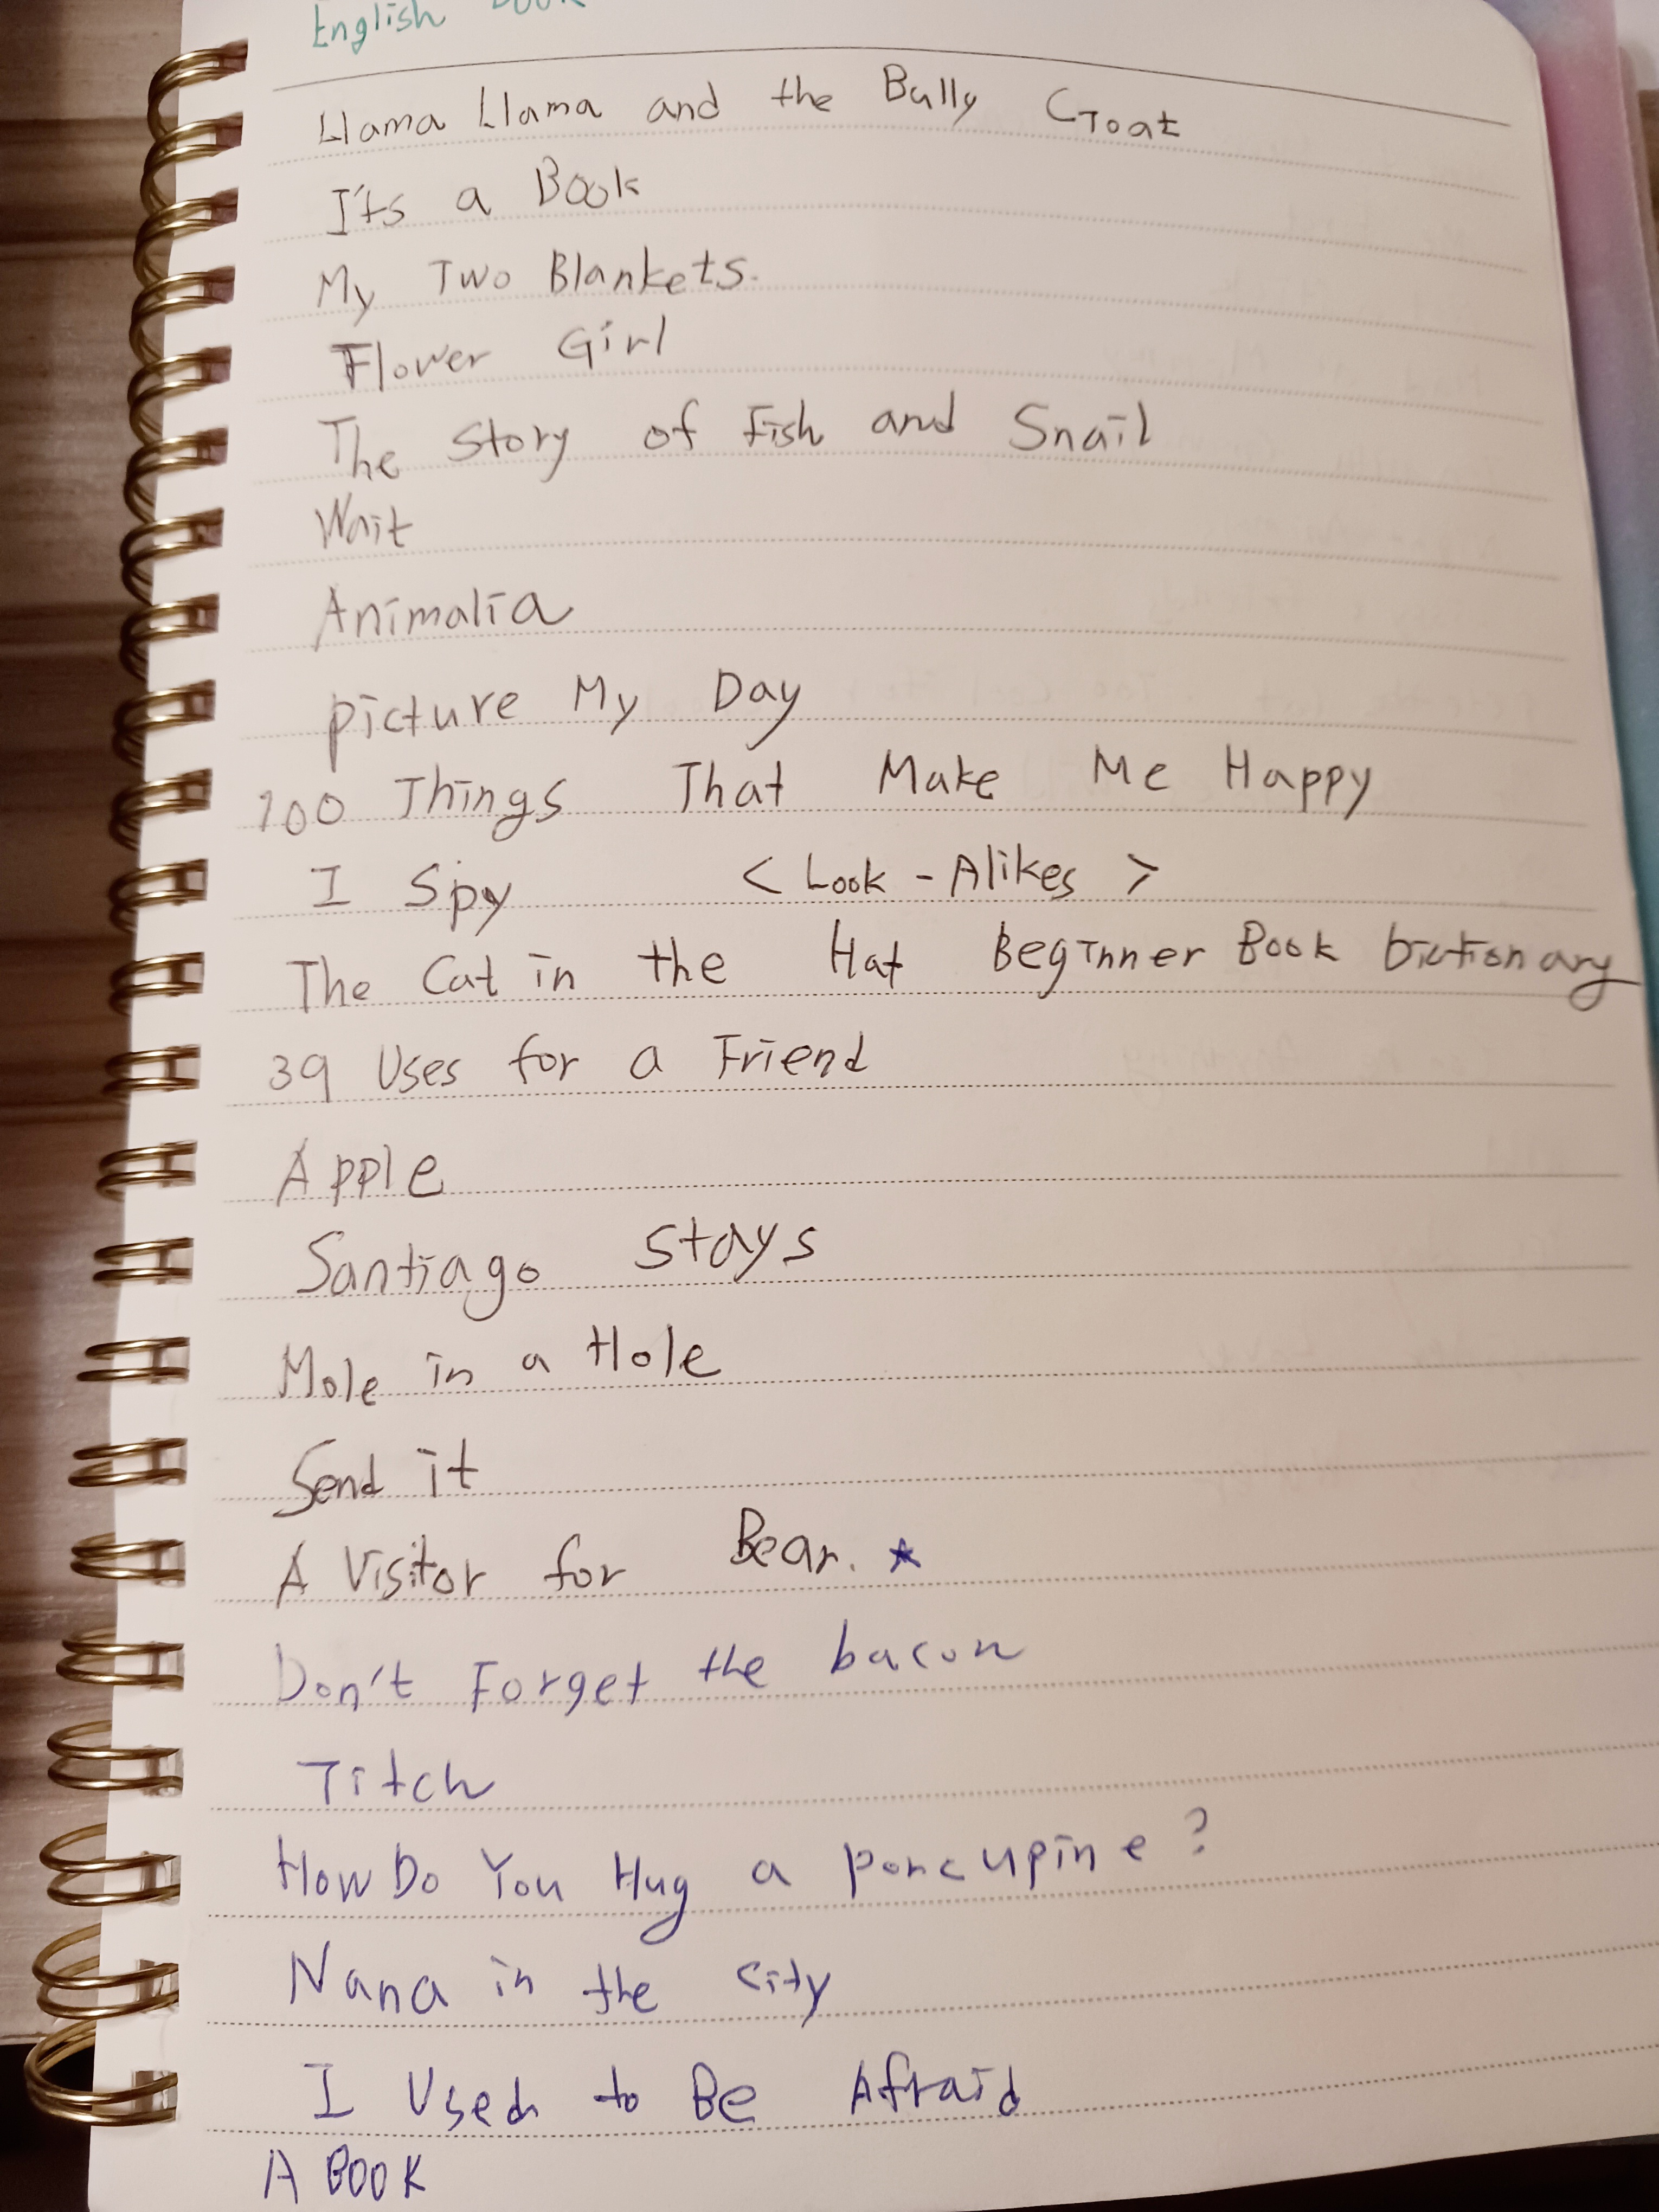 English Book
Llama Llama and the Bully Goat
It's a Book
My Two Blankets.
Flower Girl
The Story of Fish and Snail
Wait
Animalia
picture My Day
100 Things That Make Me Happy
I Spy < Look - Alikes >
The Cat in the Hat Beginner Book Dictionary
39 Uses for a Friend
Apple
Santiago stays
Mole in a Hole
Send it
A Visitor for Bear. ★
Don't Forget the bacon
Titch
How Do You Hug a porcupine?
Nana in the city
I Used to Be Afraid
A BOOK